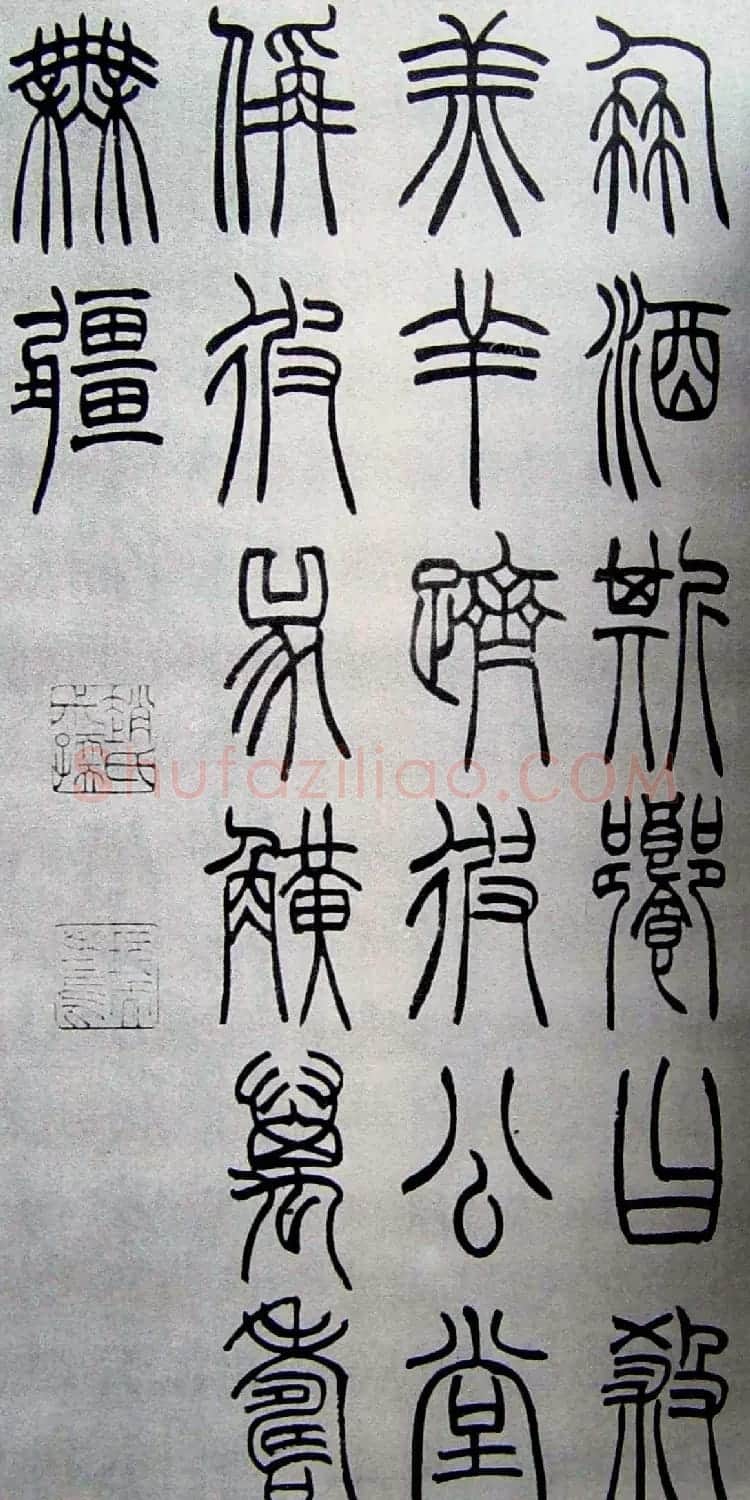 朋酒斯饗曰殺
羔羊躋彼公堂
偁彼兕觵萬壽
無疆
Shufaziliao.COM